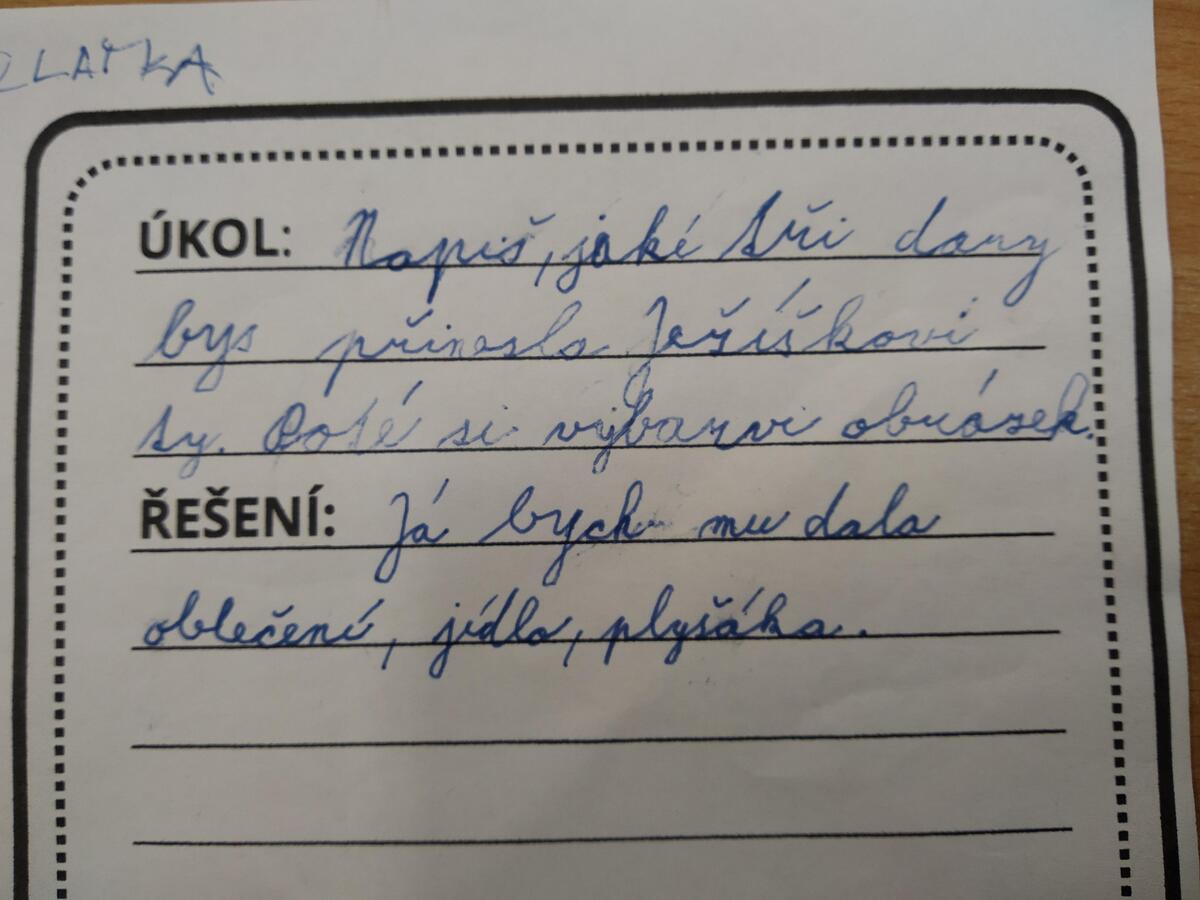 ZLAŤKA
ÚKOL: Napiš, jaké tři dary
bys přinesla Ježíškovi
ty. Poté si vybarvi obrázek.
ŘEŠENÍ: Já bych mu dala
oblečení, jídlo, plyšáka.